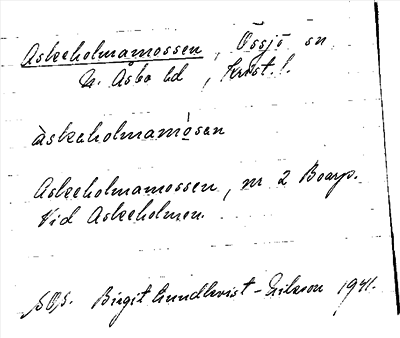 Askeholmamossen, Össjö sn
N. Åsbo hd, Krist. l.
àskaholmamòsan
Askeholmamossen, nr 2 Boarp.
Vid Askeholmen.
Birgit Lundkvist-Erikson 1941.